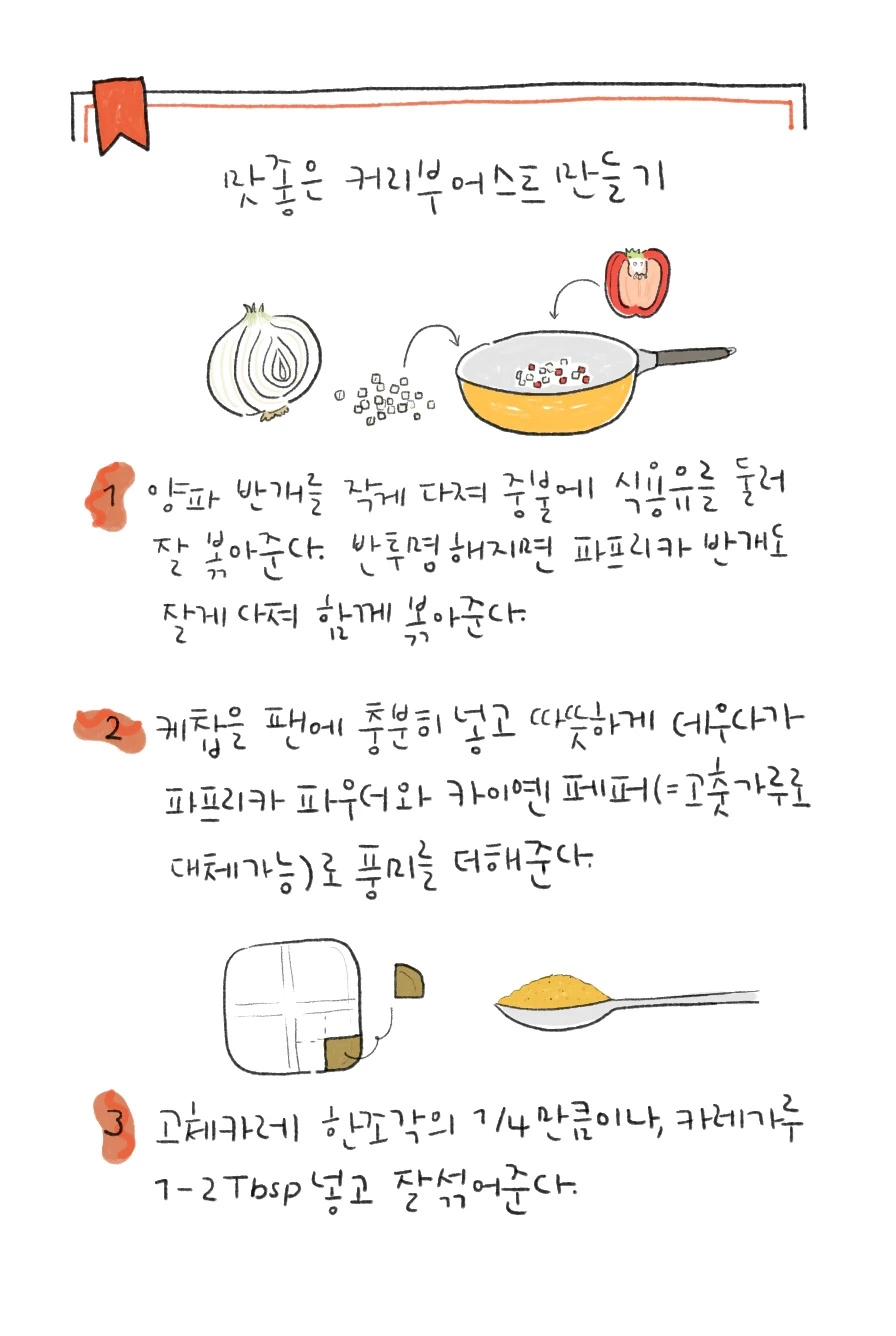 맛좋은 커리부어스트 만들기
1 양파 반개를 작게 다져 중불에 식용유를 둘러
잘 볶아준다. 반투명해지면 파프리카 반개도
잘게 다져 함께 볶아준다.
2 케찹을 팬에 충분히 넣고 따뜻하게 데우다가
파프리카 파우더와 카이옌 페퍼(=고춧가루로
대체가능)로 풍미를 더해준다.
3 고체카레 한조각의 1/4만큼이나, 카레가루
1-2Tbsp 넣고 잘섞어준다.